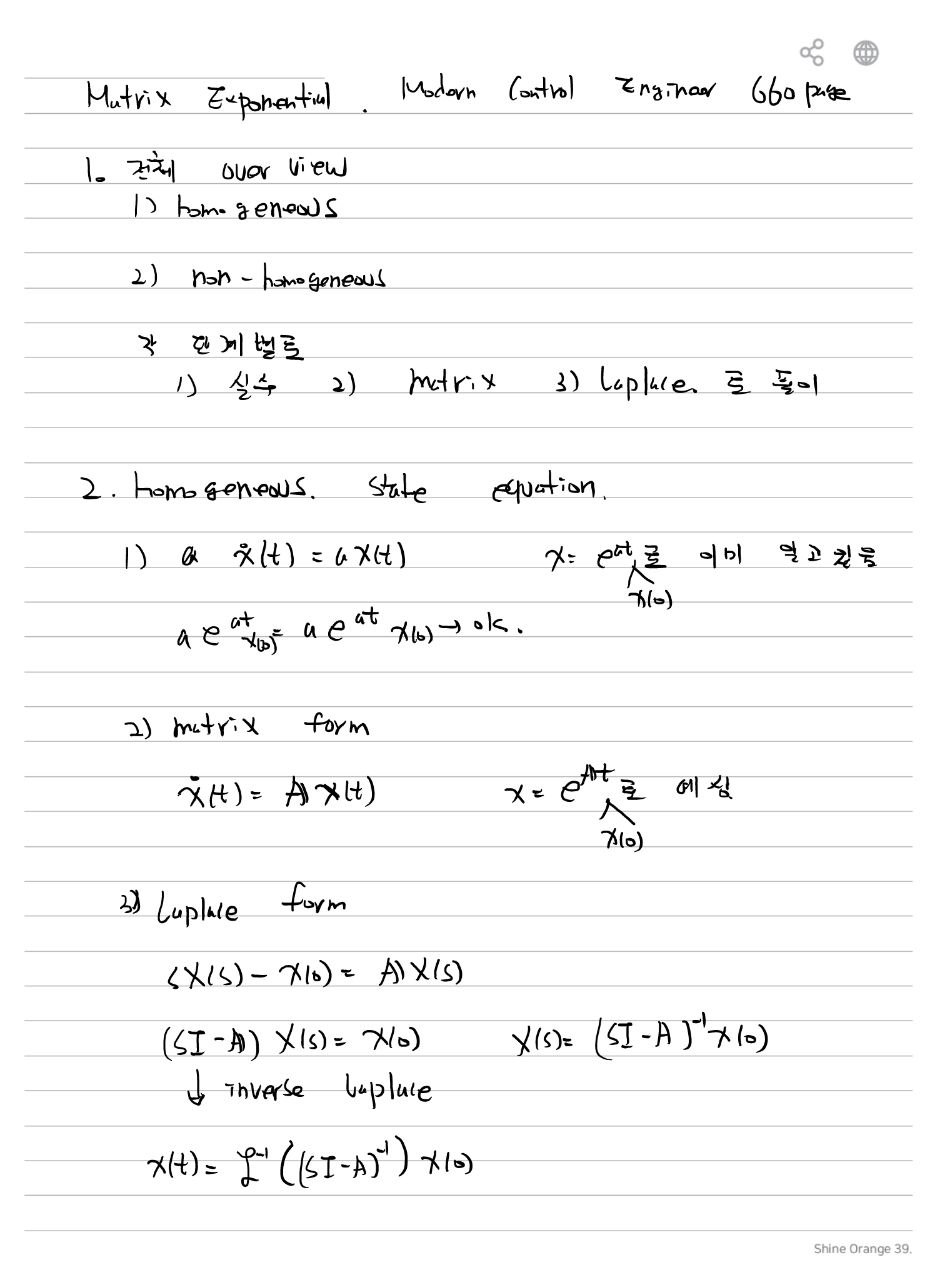 Matrix Exponential. Modern Control Engineer 660 page
1. 전체 over view
1) homogeneous
2) non - homogeneous
각 단계별로
1) 실수 2) matrix 3) Laplace. 로 풀이
2. homogeneous. state equation.
1) a ẋ(t) = a x(t) x = e^{at} 로 이미 알고 있음
x(0)
a e^{at} x(0) = a e^{at} x(0) → ok.
2) matrix form
ẋ(t) = A x(t) x = e^{At} 로 예상
x(0)
3) Laplace form
sX(s) - x(0) = A X(s)
(sI - A) X(s) = x(0) X(s) = (sI - A)^{-1} x(0)
↓ inverse laplace
x(t) = ℒ^{-1} ((sI - A)^{-1}) x(0)
Shine Orange 39.